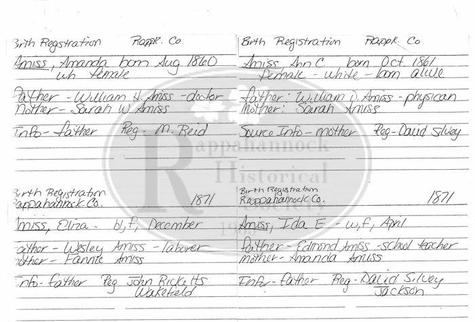 Birth Registration Rappk. Co
Amiss, Amanda born Aug 1860
wh female
Father - William D Amiss - doctor
Mother - Sarah W Amiss
Info - father Reg - M. Reid
Birth Registration Rappk. Co
Amiss, Ann C born Oct 1861
female - white - born alive
father: William D Amiss - physican
mother: Sarah Amiss
Source Info - mother Reg - David Silvey
Rappahannock
Historical
Birth Registration
Rappahannock Co. 1871
Amiss, Eliza - bl, f, December
Father - Wesley Amiss - laborer
Mother - Fannie Amiss
Info - father Reg John Ricketts
Wakefield
Birth Registration
Rappahannock Co. 1871
Amiss, Ida E - w, f, April
Father - Edmond Amiss - school teacher
mother - Amanda Amiss
Infor - father Reg - David Silvey
Jackson